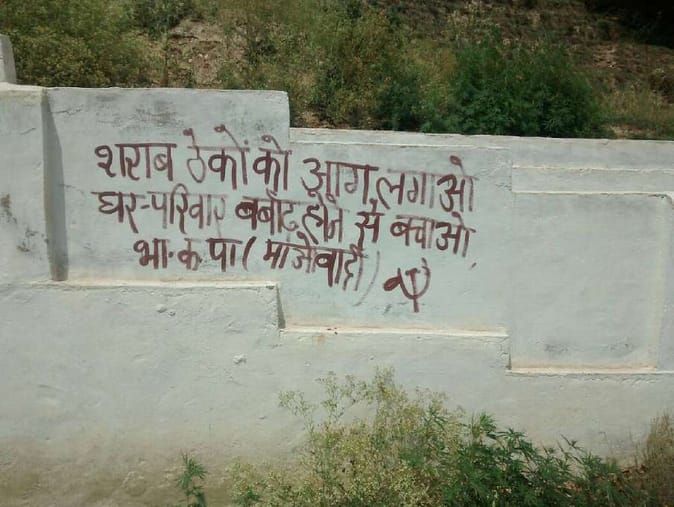 शराब ठेकों को आग लगाओ
घर-परिवार बर्बाद होने से बचाओ
भा·क·पा (माओवादी)